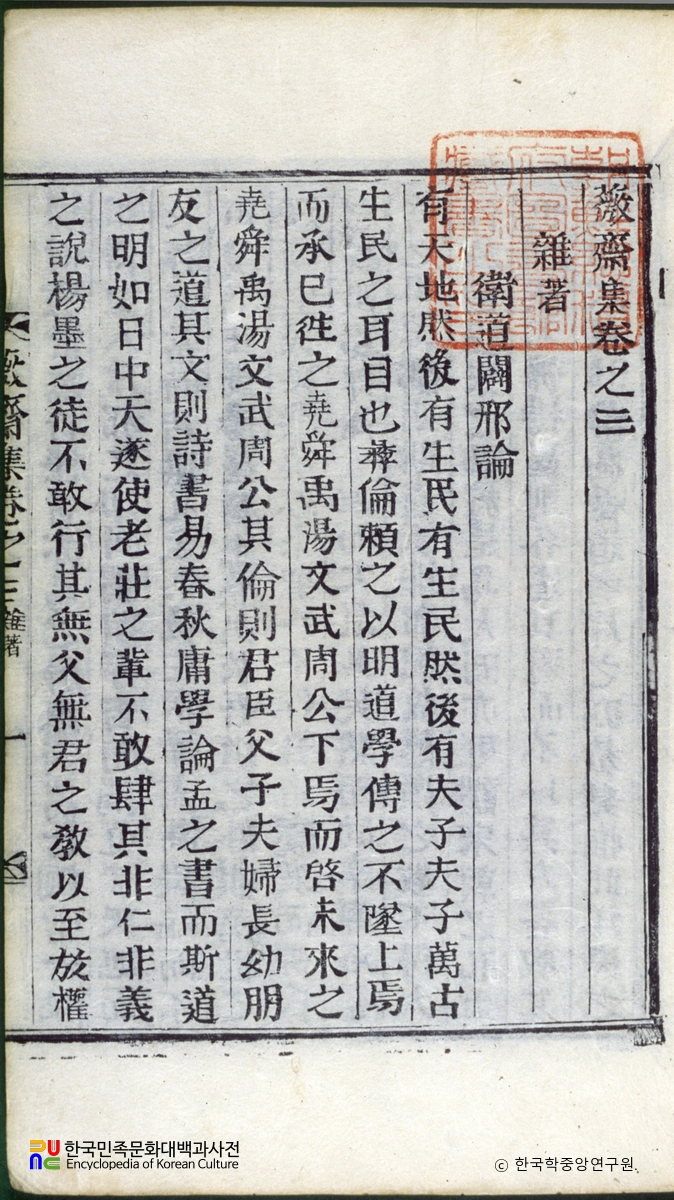 薇齋集卷之三
雜著
衛道闢邪論
有天地然後有生民有生民然後有夫子夫子萬古
生民之耳目也彜倫賴之以明道學傳之不墜上焉
而承已徃之堯舜禹湯文武周公下焉而啓未來之
堯舜禹湯文武周公其倫則君臣父子夫婦長幼朋
友之道其文則詩書易春秋庸學論孟之書而斯道
之明如日中天遂使老莊之輩不敢肆其非仁非義
之說楊墨之徒不敢行其無父無君之敎以至放權
薇齋集卷之三 雜著 一
한국민족문화대백과사전
Encyclopedia of Korean Culture
ⓒ 한국학중앙연구원